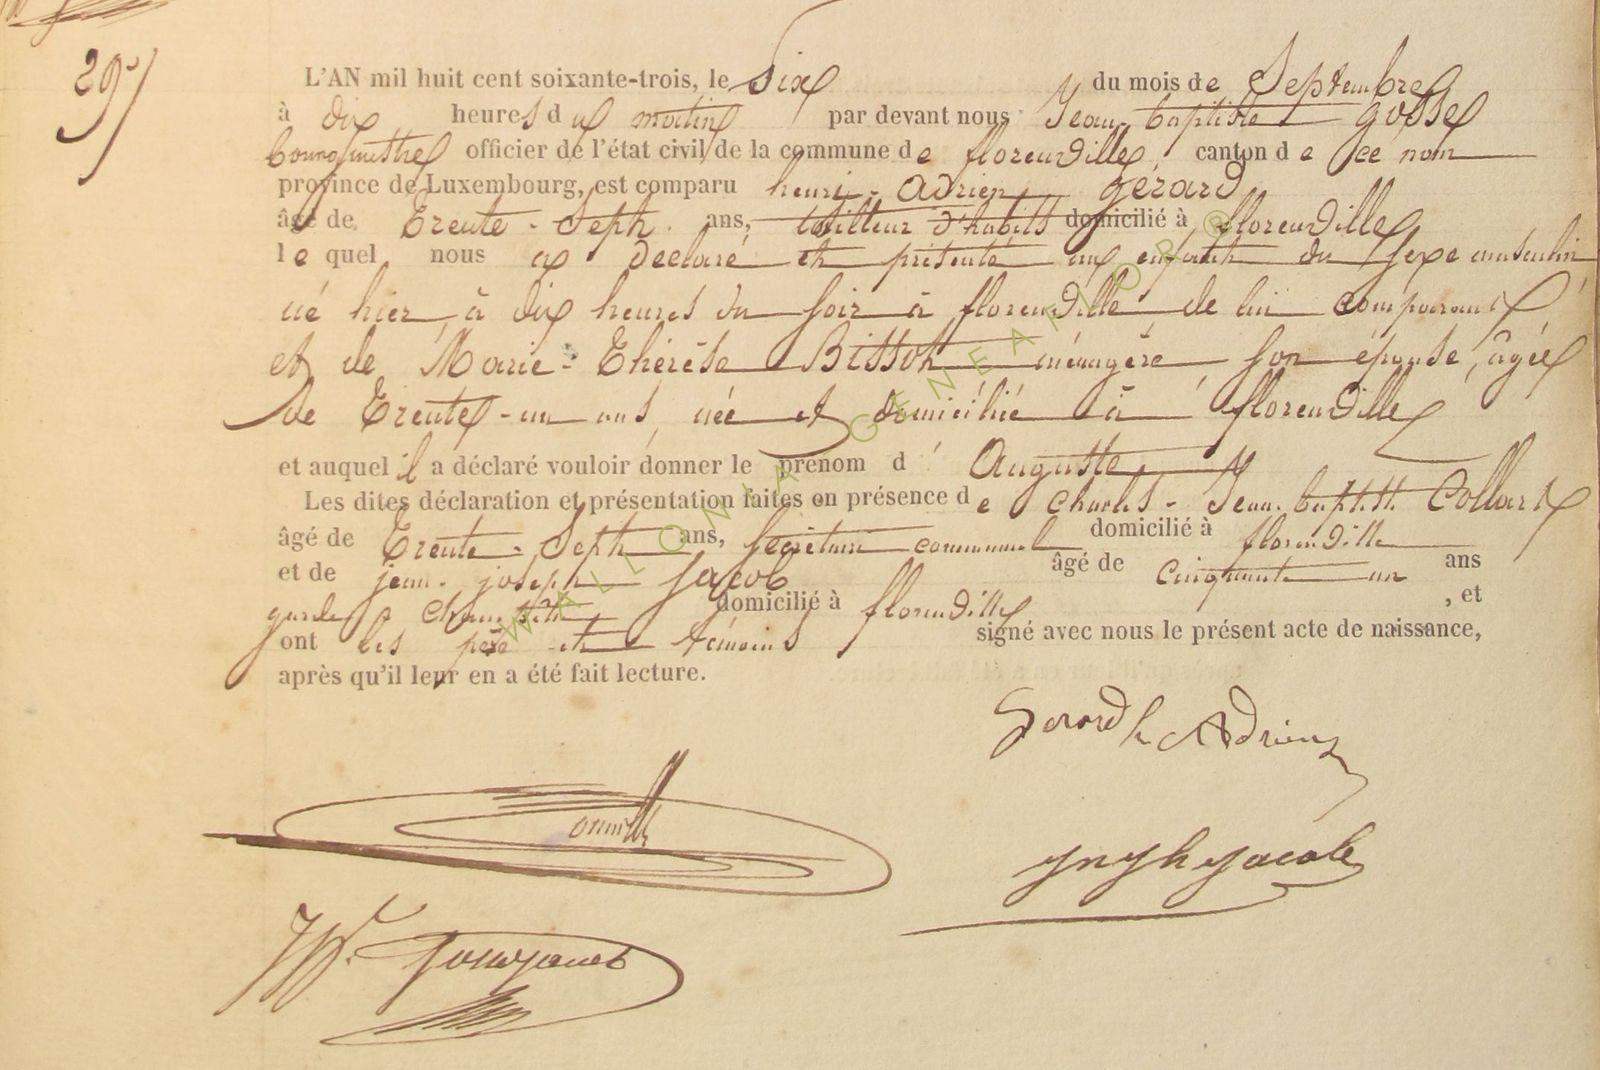 29
L'AN mil huit cent soixante-trois, le Six du mois de Septembre
à dix heures du matin par devant nous Jean-baptiste gosse
bourgmestre officier de l'état civil de la commune de florendille, canton de ce nom
province de Luxembourg, est comparu henri-Adrien gérard
âgé de Trente-Seph ans, tailleur d'habits domicilié à florendille
lequel nous a declaré et présenté un enfant du Sexe masculin,
né hier, à dix heures du soir à florendille de lui comparant
et de Marie-Thérèse Bissot ménagère son épouse, âgée
de Trente-un ans, née et domiciliée à florendille
et auquel il a déclaré vouloir donner le prénom d'Auguste
Les dites déclaration et présentation faites en présence de Charles-Jean-baptiste Collart
âgé de Trente-Seph ans, Secrétaire communal domicilié à florendille
et de jean-joseph Jacob âgé de cinquante un ans
garde-champêtre domicilié à florendille, et
ont les père et témoins signé avec nous le présent acte de naissance,
après qu'il leur en a été fait lecture.
Gerard h Adrien
Jacob
WALLONIA GENEA FLOR ®